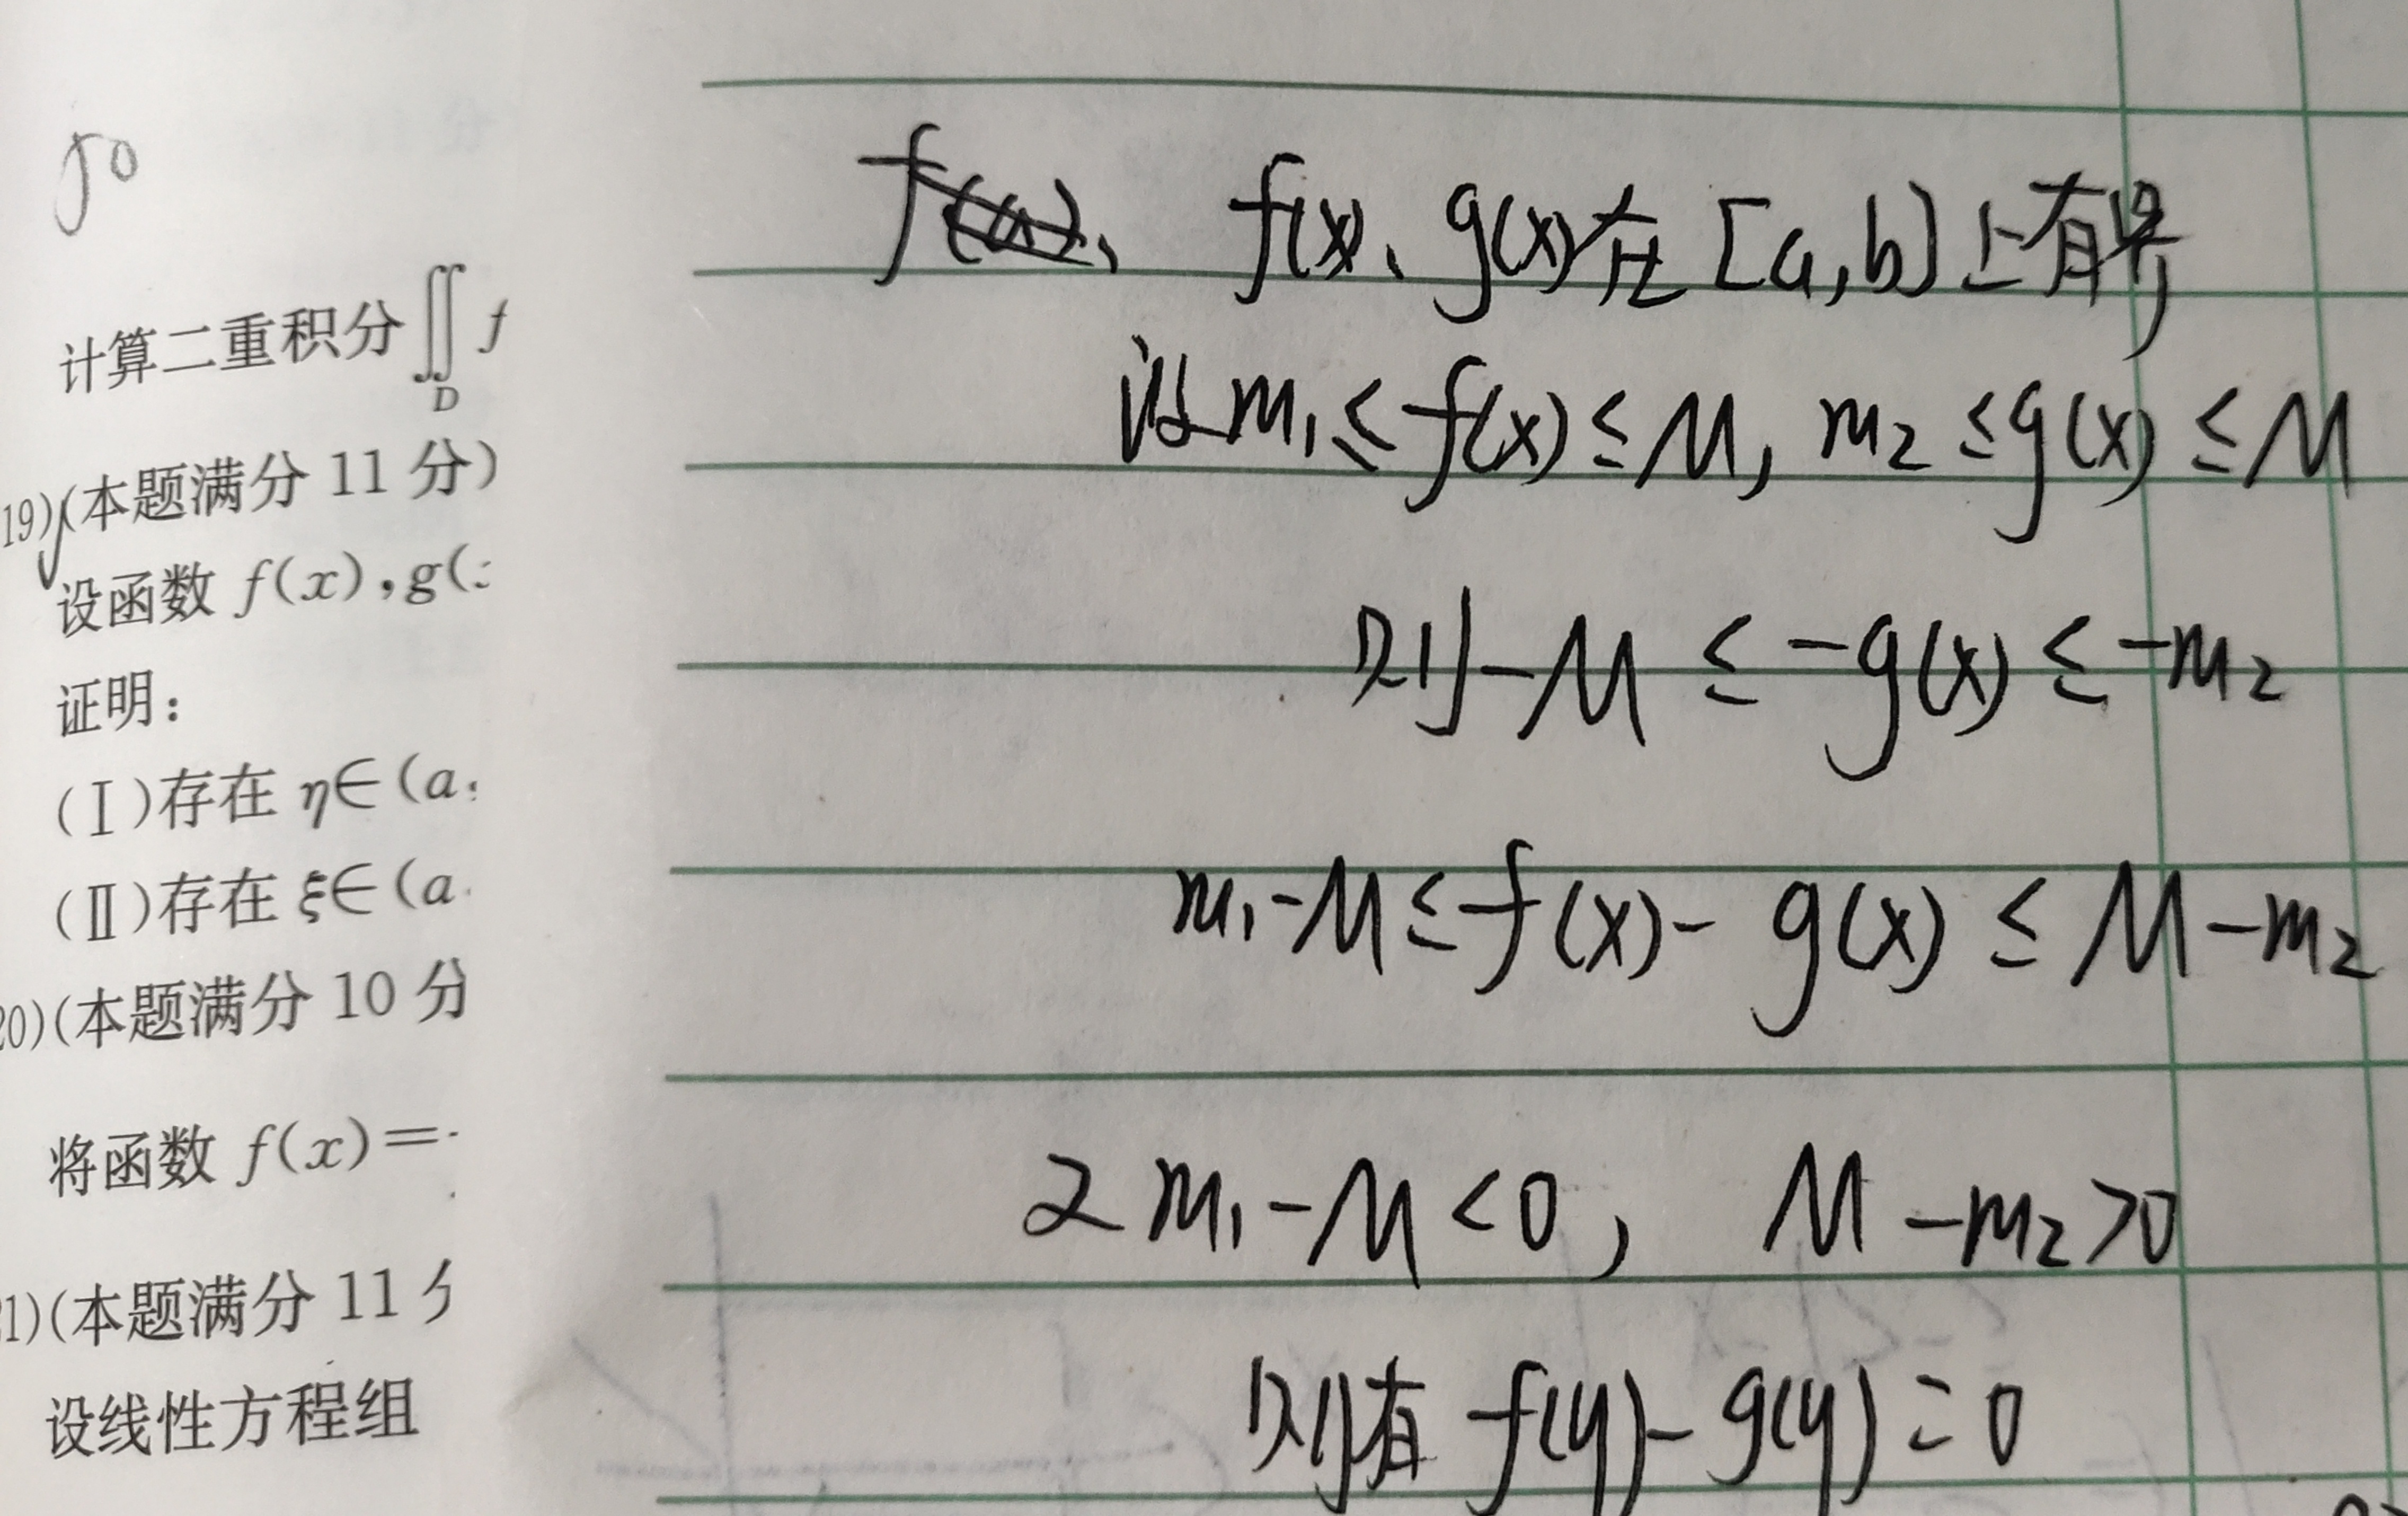 计算二重积分∬_D f
19)(本题满分 11 分)
设函数 f(x),g(
证明:
(Ⅰ)存在 η∈(a,
(Ⅱ)存在 ξ∈(a
20)(本题满分 10 分
将函数 f(x)=
1)(本题满分 11 分
设线性方程组
f(x)、g(x)在[a,b]上有界,
设m₁≤f(x)≤M, m₂≤g(x)≤M
则-M≤-g(x)≤-m₂
m₁-M≤f(x)-g(x)≤M-m₂
又m₁-M<0, M-m₂>0
则有 f(η)-g(η)=0